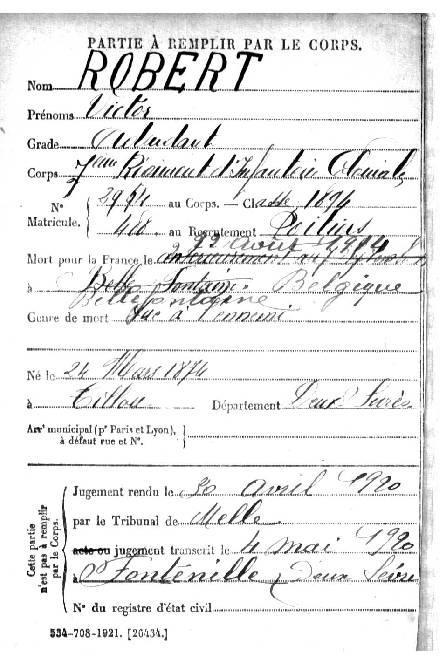 PARTIE À REMPLIR PAR LE CORPS.
Nom ROBERT
Prénoms Victor
Grade Adjudant
Corps 7ème Régiment d'Infanterie Coloniale
N° Matricule. { 3994 au Corps. — Classe 1894
468 au Recrutement Poitiers
22 août 1914
Mort pour la France le
à Bellefontaine Belgique
Bellefontaine
Genre de mort Tué à l'ennemi
Né le 24 Mars 1874
à Tillou Département Deux Sèvres
Arr^t municipal (p^r Paris et Lyon), à défaut rue et N°. }
Cette partie n'est pas à remplir par le Corps.
Jugement rendu le 30 avril 1920
par le Tribunal de Melle
acte ou jugement transcrit le 4 mai 1920
à Fontenille Deux Sèvres
N° du registre d'état civil
534-708-1921. [26434.]